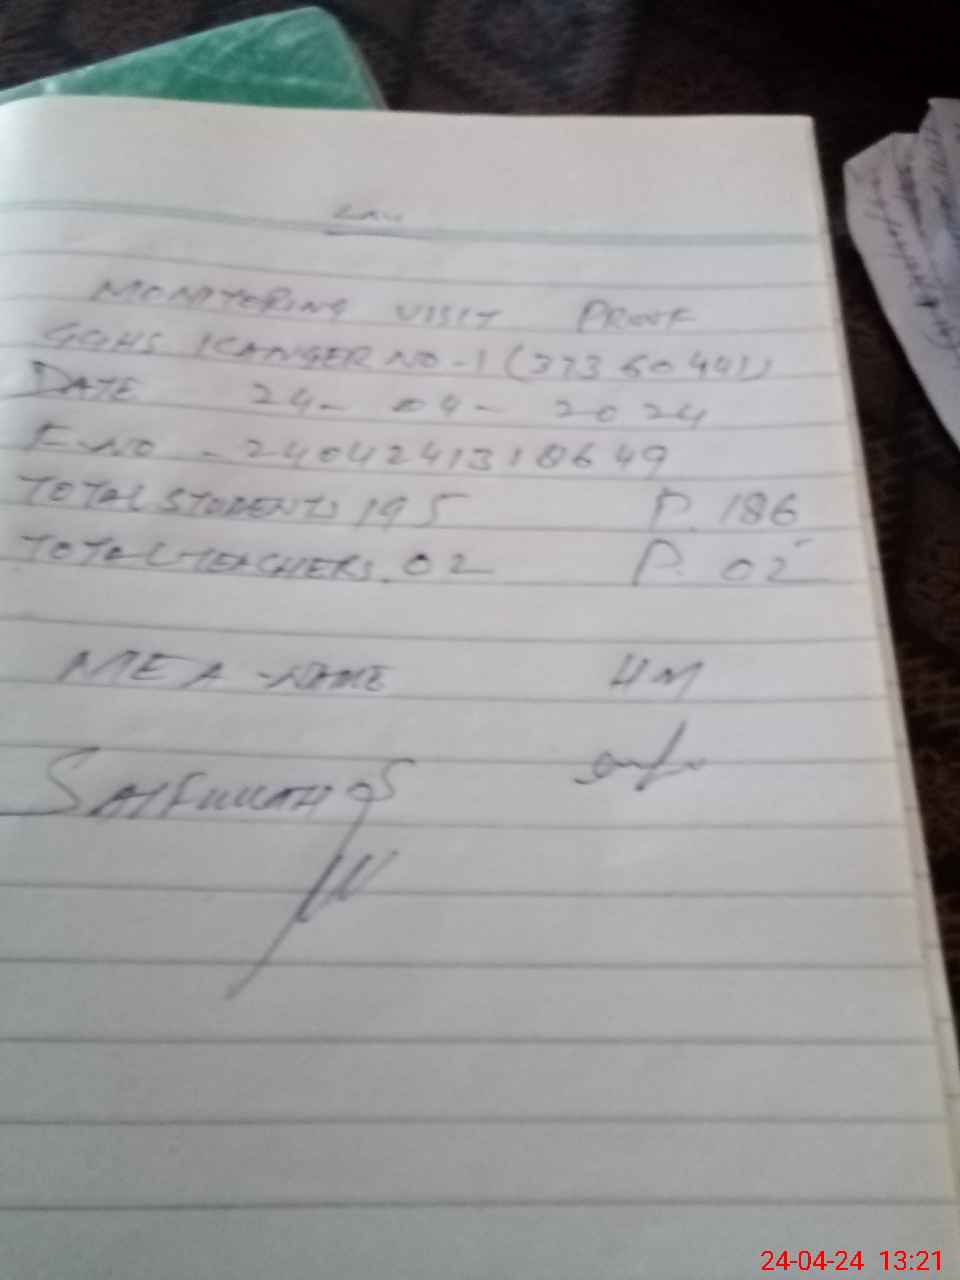 MONITORING VISIT PROOF
KANGER NO-1 (37360441)
DATE 24- 04- 2024
- 2404241318649
TOTAL STUDENTS 195 P. 186
TOTAL TEACHERS. 02 P. 02
MEA -NAME HM
SAIFULLAH
24-04-24 13:21